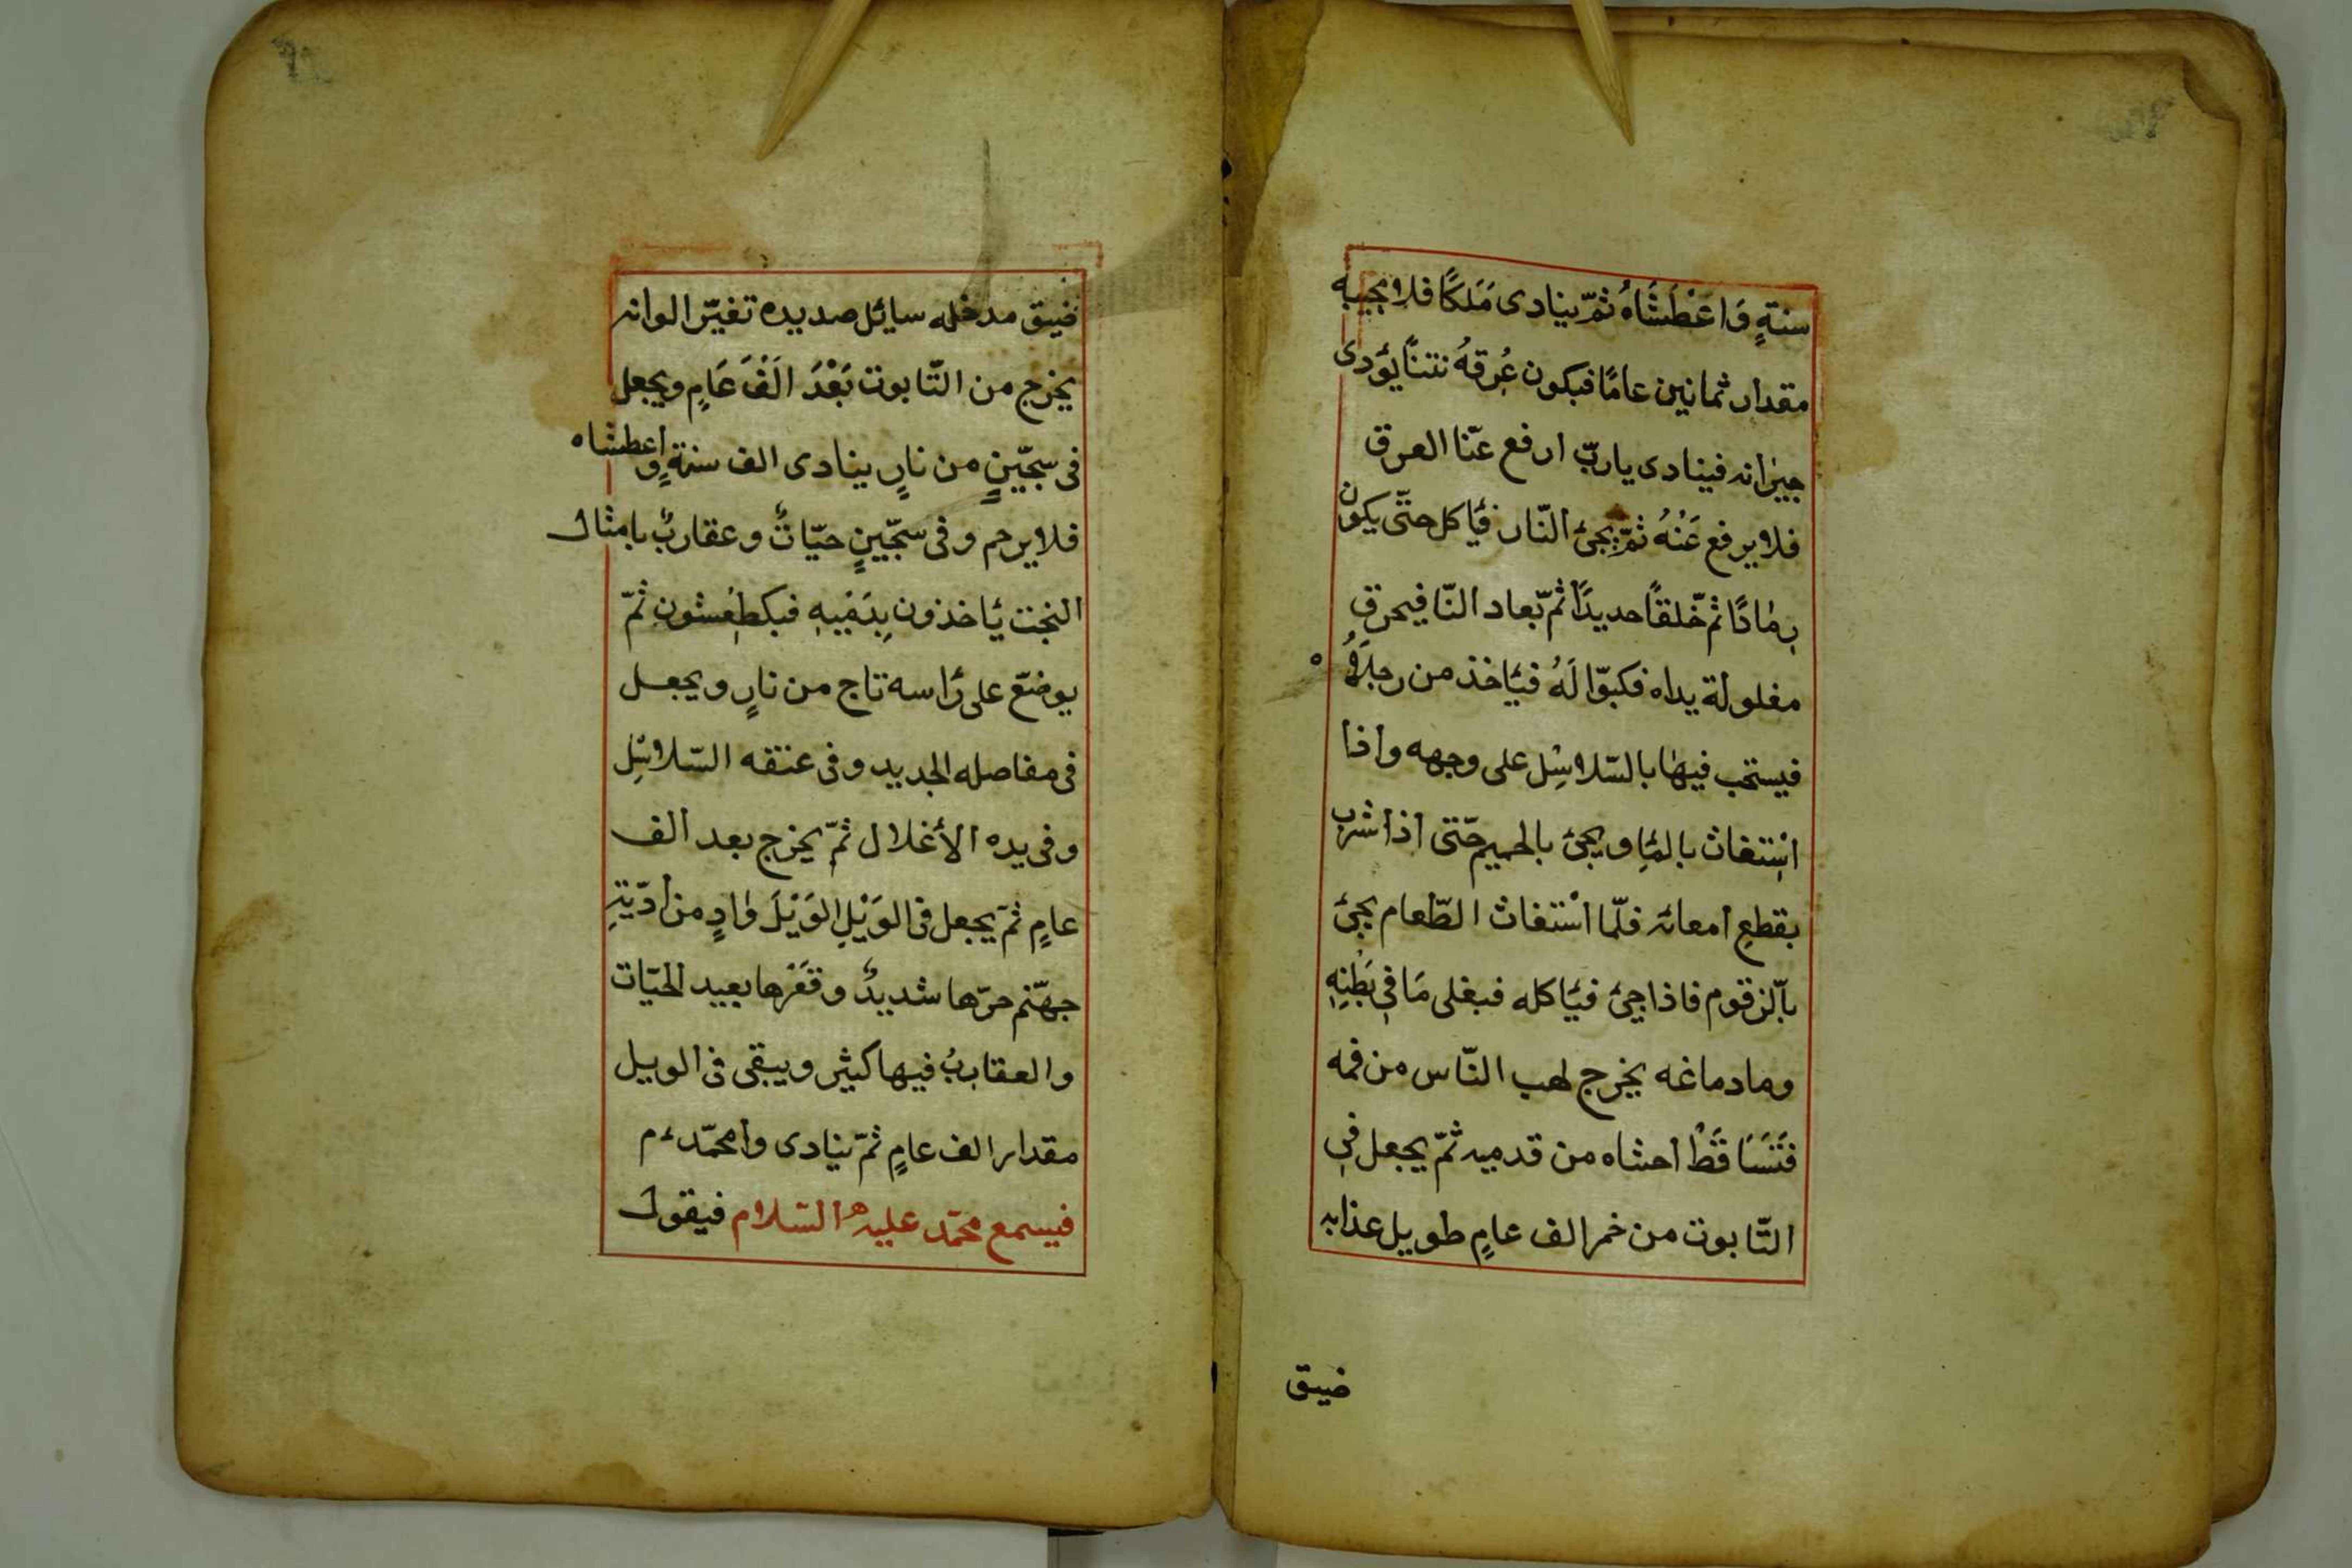 سنةٍ وَاعَطَشَاهُ ثمّ ينادى مَلَكًا فلا يجيبه
مقدار ثمانين عامًا فيكون عُرقهُ نتنًا يؤدى
جيرانه فينادى يا ربّ ارفع عنّا العرق
فلا يرفع عَنْهُ ثمّ يجئ النّار فيأكل حتّى يكون
رمادًا ثمّ خلقًا حديدًا ثمّ تعاد النّا فيحرق
مغلولة يداه فكبوّا لَهُ فيأخذ من رجلَهُ
فيستحب فيها بالسّلاسِل على وجهه واذا
استغاث بالماءِ ويجئ بالحميم حتّى اذا شرب
بقطعِ امعائه فلّما استغاث الطّعام يجئ
بالّزقوم فاذا جئ فيأكله فيغلى مَا فِى بَطْنِهِ
وما دماغه يخرج لهب النّاس من فمه
فَتَسَاقَطْ احشاه من قدميه ثمّ يجعل فى
التّابوت من خمر الف عامٍ طويل عذابه
ضيق
ضيق مدخله سايل صديده تغيّر الوانه
يخرج من التّابوت بَعْدَ الَفَ عَامٍ ويجعل
فى سجّينٍ من نارٍ ينادى الف سنةٍ واعطشاه
فلا يرحم وفى سجّينٍ حيّاتٌ وعقاربٌ بامثال
البخت يأخذون بِدَمَيهِ فيكطِعشون ثمّ
يوضَع على رَأسه تاج من نارٍ ويجعل
فى مفاصله الحديد وفى عنقه السّلاسِل
وفى يده الأغلال ثمّ يخرج بعد الف
عامٍ ثمّ يجعل فى الوَيْلِ الوَيْلَ وٰادٍ من أدّيَتِهِ
جهّنم حرّها شديدٌ وقَعْرها بعيد الحيّات
والعقاربُ فيها كثير ويبقى فى الويل
مقدار الف عامٍ ثمّ ينادى وامحمّدءم
فيسمع محمّد عليه السّلام فيقول